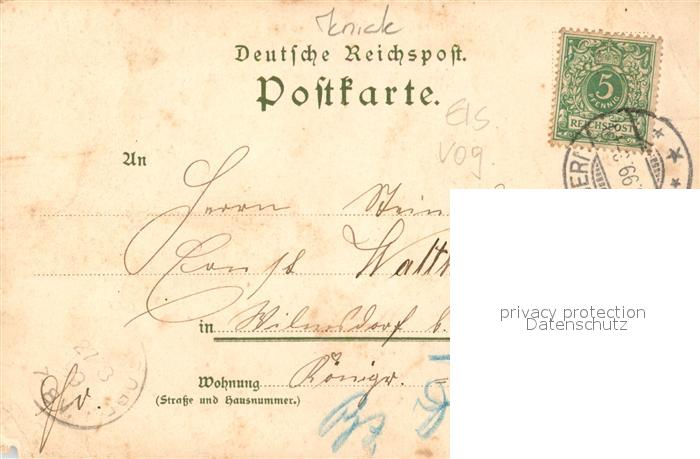 Knick
Deutsche Reichspost.
Postkarte.
5
PFENNIG
REICHSPOST
Els
Vog.
An
Herrn Stein
Ernst Walth
in Wilmsdorf b.
Wohnung Königr.
(Straße und Hausnummer.)
privacy protection
Datenschutz